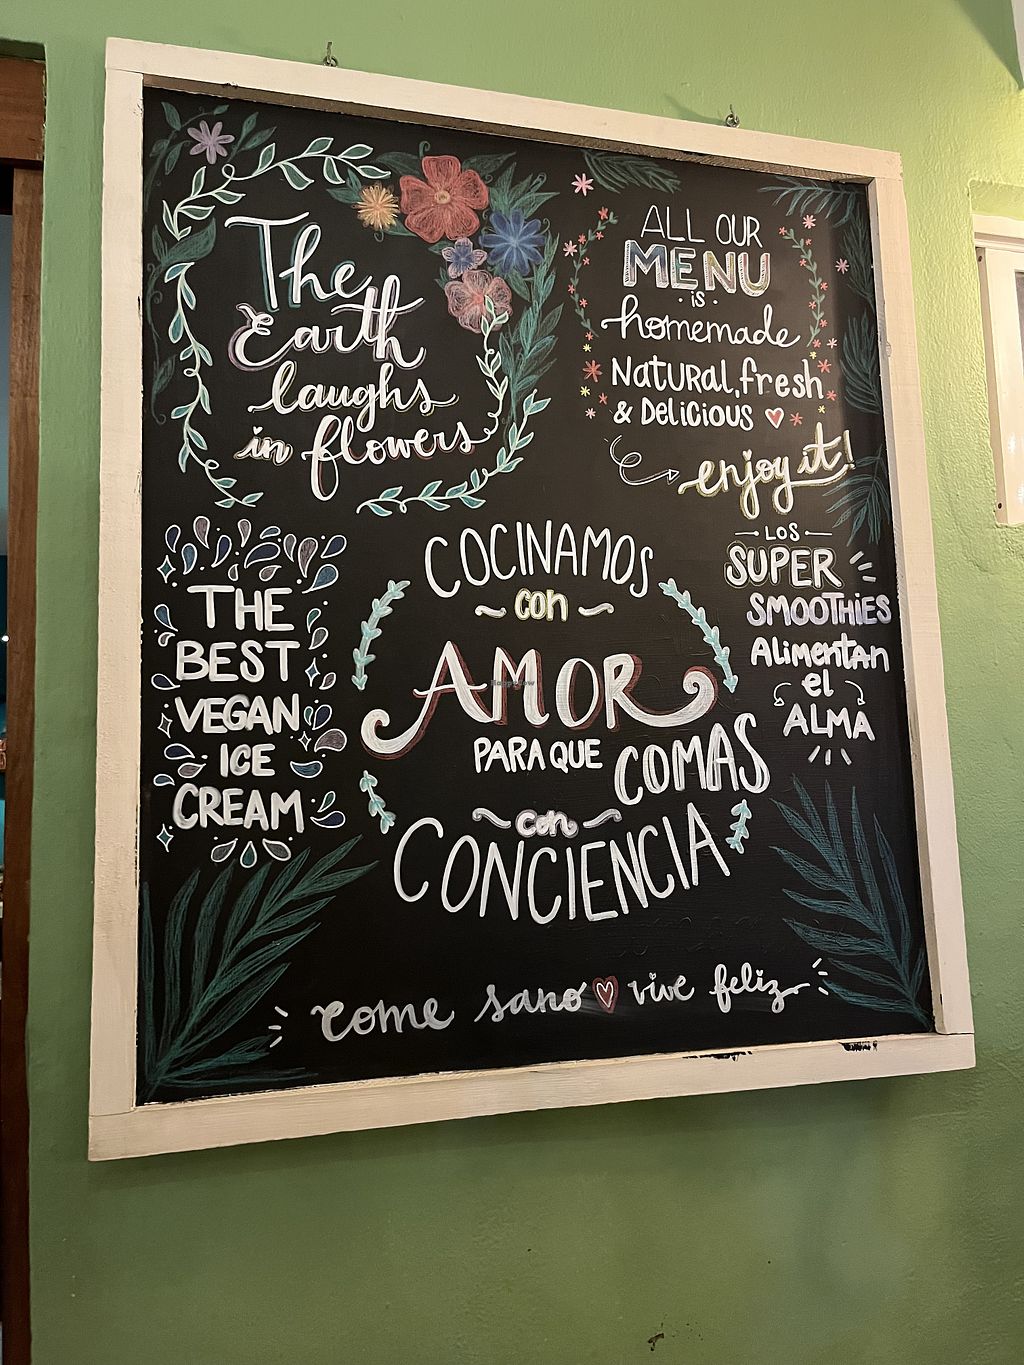 The
Earth
laughs
in flowers
ALL OUR
MENU
is
homemade
Natural, fresh
& Delicious
enjoy it!
THE
BEST
VEGAN
ICE
CREAM
COCINAMOS
con
AMOR
PARA QUE COMAS
con
CONCIENCIA
LOS
SUPER
SMOOTHIES
Alimentan
el
ALMA
come sano vive feliz
HappyCow